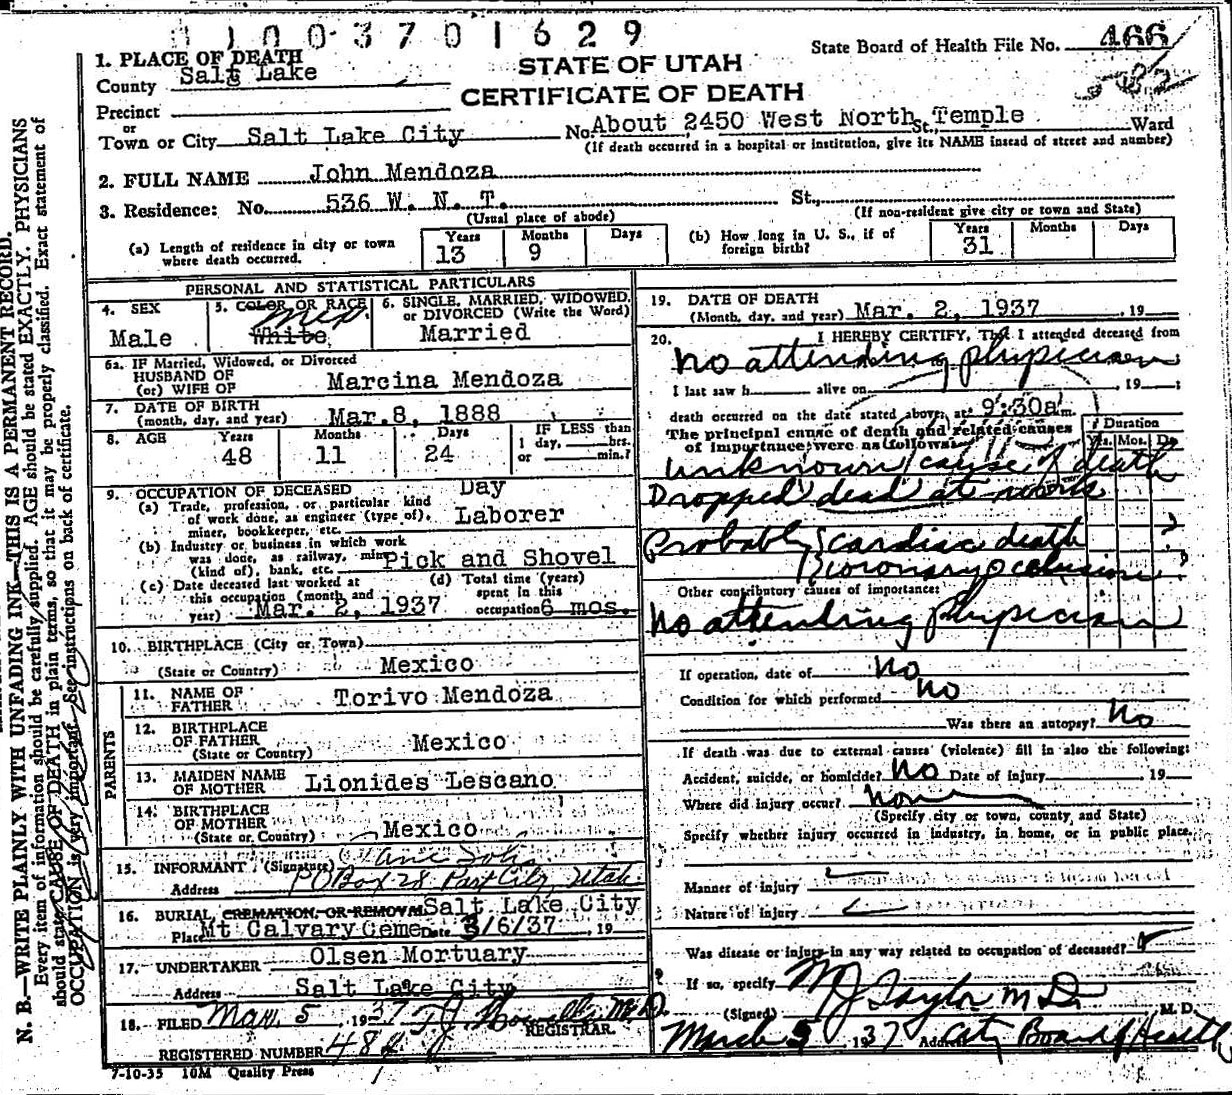 1003701629
State Board of Health File No. 466
1. PLACE OF DEATH
STATE OF UTAH
County Salt Lake
CERTIFICATE OF DEATH
Precinct
or
Town or City Salt Lake City No. About 2450 West North St., Temple Ward
(If death occurred in a hospital or institution, give its NAME instead of street and number)
2. FULL NAME John Mendoza
3. Residence: No. 536 W. N. T. St.,
(Usual place of abode) (If non-resident give city or town and State)
(a) Length of residence in city or town where death occurred. Years 13 Months 9 Days
(b) How long in U. S., if of foreign birth? Years 31 Months Days
PERSONAL AND STATISTICAL PARTICULARS
4. SEX Male
5. COLOR OR RACE White Mex
6. SINGLE, MARRIED, WIDOWED, or DIVORCED (Write the Word) Married
6a. IF Married, Widowed, or Divorced
HUSBAND OF
(or) WIFE OF Marcina Mendoza
7. DATE OF BIRTH
(month, day, and year) Mar. 8, 1888
8. AGE Years 48 Months 11 Days 24 IF LESS than 1 day, hrs. or min.?
9. OCCUPATION OF DECEASED Day
(a) Trade, profession, or particular kind of work done, as engineer (type of), miner, bookkeeper, etc. Laborer
(b) Industry or business in which work was done, as railway, mine (kind of), bank, etc. Pick and Shovel
(c) Date deceased last worked at this occupation (month and year) Mar. 2, 1937
(d) Total time (years) spent in this occupation 6 mos.
10. BIRTHPLACE (City or Town)
(State or Country) Mexico
PARENTS
11. NAME OF FATHER Torivo Mendoza
12. BIRTHPLACE OF FATHER
(State or Country) Mexico
13. MAIDEN NAME OF MOTHER Lionides Lescano
14. BIRTHPLACE OF MOTHER
(State or Country) Mexico
15. INFORMANT (Signature)
Address PO Box 28 Park City, Utah
16. BURIAL, CREMATION, OR REMOVAL Salt Lake City
Place Mt Calvary Ceme Date 3/6/37, 19
17. UNDERTAKER Olsen Mortuary
Address Salt Lake City
18. FILED Mar. 5 1937 M. D.
REGISTRAR.
REGISTERED NUMBER 482
7-10-35 10M Quality Press
19. DATE OF DEATH
(Month, day, and year) Mar. 2, 1937, 19
20. I HEREBY CERTIFY, That I attended deceased from
No attending physician
I last saw h alive on , 19 ;
death occurred on the date stated above, at 9:30a m.
The principal cause of death and related causes of importance were as follows:
Duration
Yrs. Mos. D
Unknown cause of death
Dropped dead at work
Probably cardiac death ?
Coronary occlusion ?
Other contributory causes of importance:
No attending physician
If operation, date of No
Condition for which performed No
Was there an autopsy? No
If death was due to external causes (violence) fill in also the following:
Accident, suicide, or homicide? No Date of injury 19
Where did injury occur?
(Specify city or town, county and State)
Specify whether injury occurred in industry, in home, or in public place.
Manner of injury
Nature of injury
Was disease or injury in any way related to occupation of deceased?
If so, specify
(Signed) M J Taylor M D. M. D.
March 5 1937 Address City Board of Health
N. B.—WRITE PLAINLY WITH UNFADING INK—THIS IS A PERMANENT RECORD.
Every item of information should be carefully supplied. AGE should be stated EXACTLY. PHYSICIANS
should state CAUSE OF DEATH in plain terms, so that it may be properly classified. Exact statement of
OCCUPATION is very important. See instructions on back of certificate.